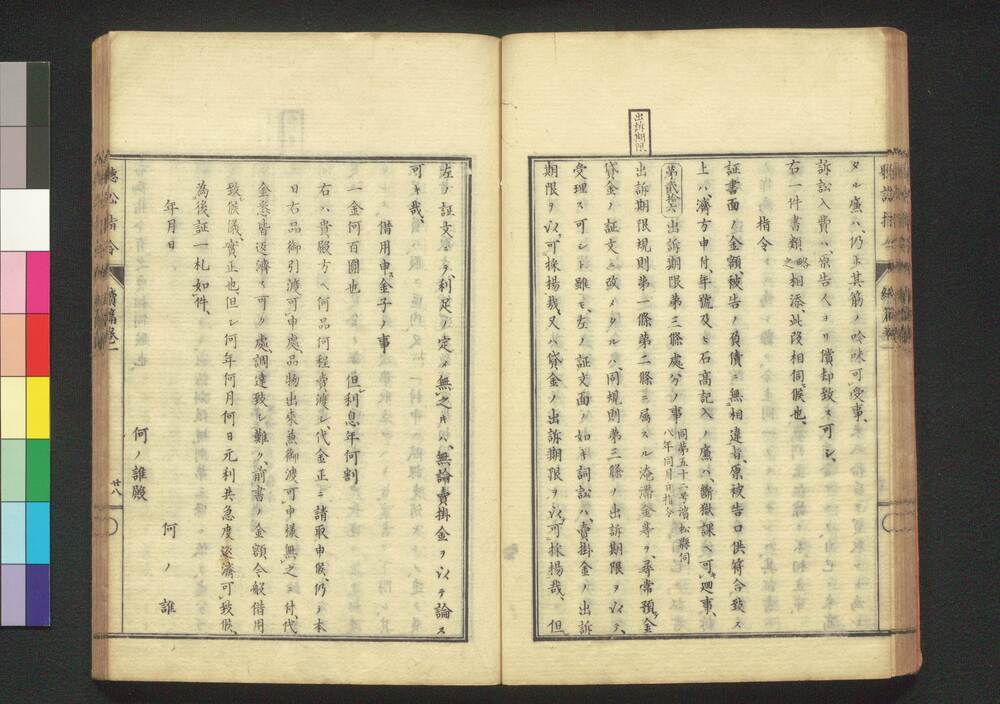 出訴期限
タル廉ハ、仍ホ其筋ノ吟味可受事、
訴訟入費ハ、原告人ヨリ償却致ス可シ、
右一件書類略之相添、此段相伺候也、
指令
証書面ノ金額、被告ノ負債ニ無相違旨、原被告口供符合致ス
上ハ、済方申付、年號及ヒ石高記入ノ廉ハ、斷獄課ヘ可廻事、
第貳拾六 出訴期限第三條處分ノ事 同第五十二号濱松縣伺 八年同月同日指令
出訴期限規則第一條第二條ニ属スル淹滞金等ヲ、尋常預金
貸金ノ証文ニ改メタルハ、同規則第三條ノ出訴期限ヲ以テ、
受理ス可シト雖モ、左ノ証文面ノ如キ詞訟ハ、賣掛金ノ出訴
期限ヲ以可採揚哉、又ハ貸金ノ出訴期限ヲ以可採揚哉、但
左ノ証文ニシテ、利足ノ定メ無之片ハ、無論賣掛金ヲ以テ論ス
可キ哉、
借用申金子ノ事
一金何百圓也 但利息年何割
右ハ貴殿方ヘ何品何程賣渡シ、代金正ニ請取申候、仍ノ本
日右品御引渡可申處、品物出來兼御渡可申様無之ニ付、代
金悉皆返濟ス可ク處、調達致シ難ク、前書ノ金額令般借用
致候儀、實正也、但シ何年何月何日元利共急度返濟可致候、
為後証一札如件、
年月日
何ノ誰
何ノ誰殿
聴訟指令
續篇巻一
廿八